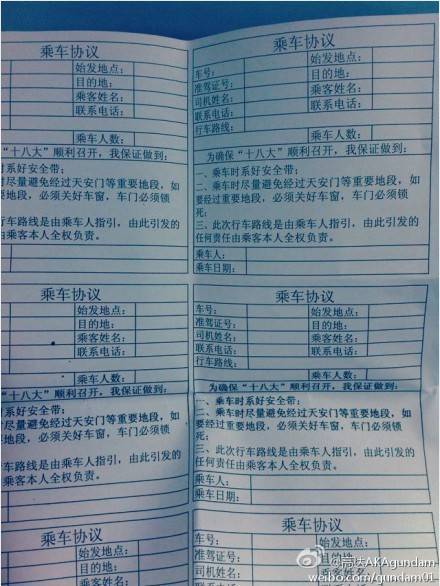 乘车协议
始发地点：
目的地：
乘客姓名：
联系电话：
乘车人数：
"十八大"顺利召开，我保证做到：
时系好安全带；
时尽量避免经过天安门等重要地段，如
地段，必须关好车窗，车门必须锁
行车路线是由乘车人指引，由此引发的
由乘客本人全权负责。
乘车协议
车号： 始发地点：
准驾证号： 目的地：
司机姓名： 乘客姓名：
联系电话： 联系电话：
行车路线：
乘车人数：
为确保"十八大"顺利召开，我保证做到：
一、乘车时系好安全带；
二、乘车时尽量避免经过天安门等重要地段，如
要经过重要地段，必须关好车窗，车门必须锁
死；
三、此次行车路线是由乘车人指引，由此引发的
任何责任由乘客本人全权负责。
乘车人：
乘车日期：
乘车协议
始发地点：
目的地：
乘客姓名：
联系电话：
乘车人数：
"十八大"顺利召开，我保证做到：
时系好安全带；
时尽量避免经过天安门等重要地段，如
地段，必须关好车窗，车门必须锁
行车路线是由乘车人指引，由此引发的
由乘客本人全权负责。
乘车协议
车号： 始发地点：
准驾证号： 目的地：
司机姓名： 乘客姓名：
联系电话： 联系电话：
行车路线：
乘车人数：
为确保"十八大"顺利召开，我保证做到：
一、乘车时系好安全带；
二、乘车时尽量避免经过天安门等重要地段，如
要经过重要地段，必须关好车窗，车门必须锁
死；
三、此次行车路线是由乘车人指引，由此引发的
任何责任由乘客本人全权负责。
乘车人：
乘车日期：
乘车协议
始发地点：
目的地：
乘客姓名：
联系电话：
乘车协议
车号： 始发地点：
准驾证号： 目的地：
司机姓名：
AKAgundam